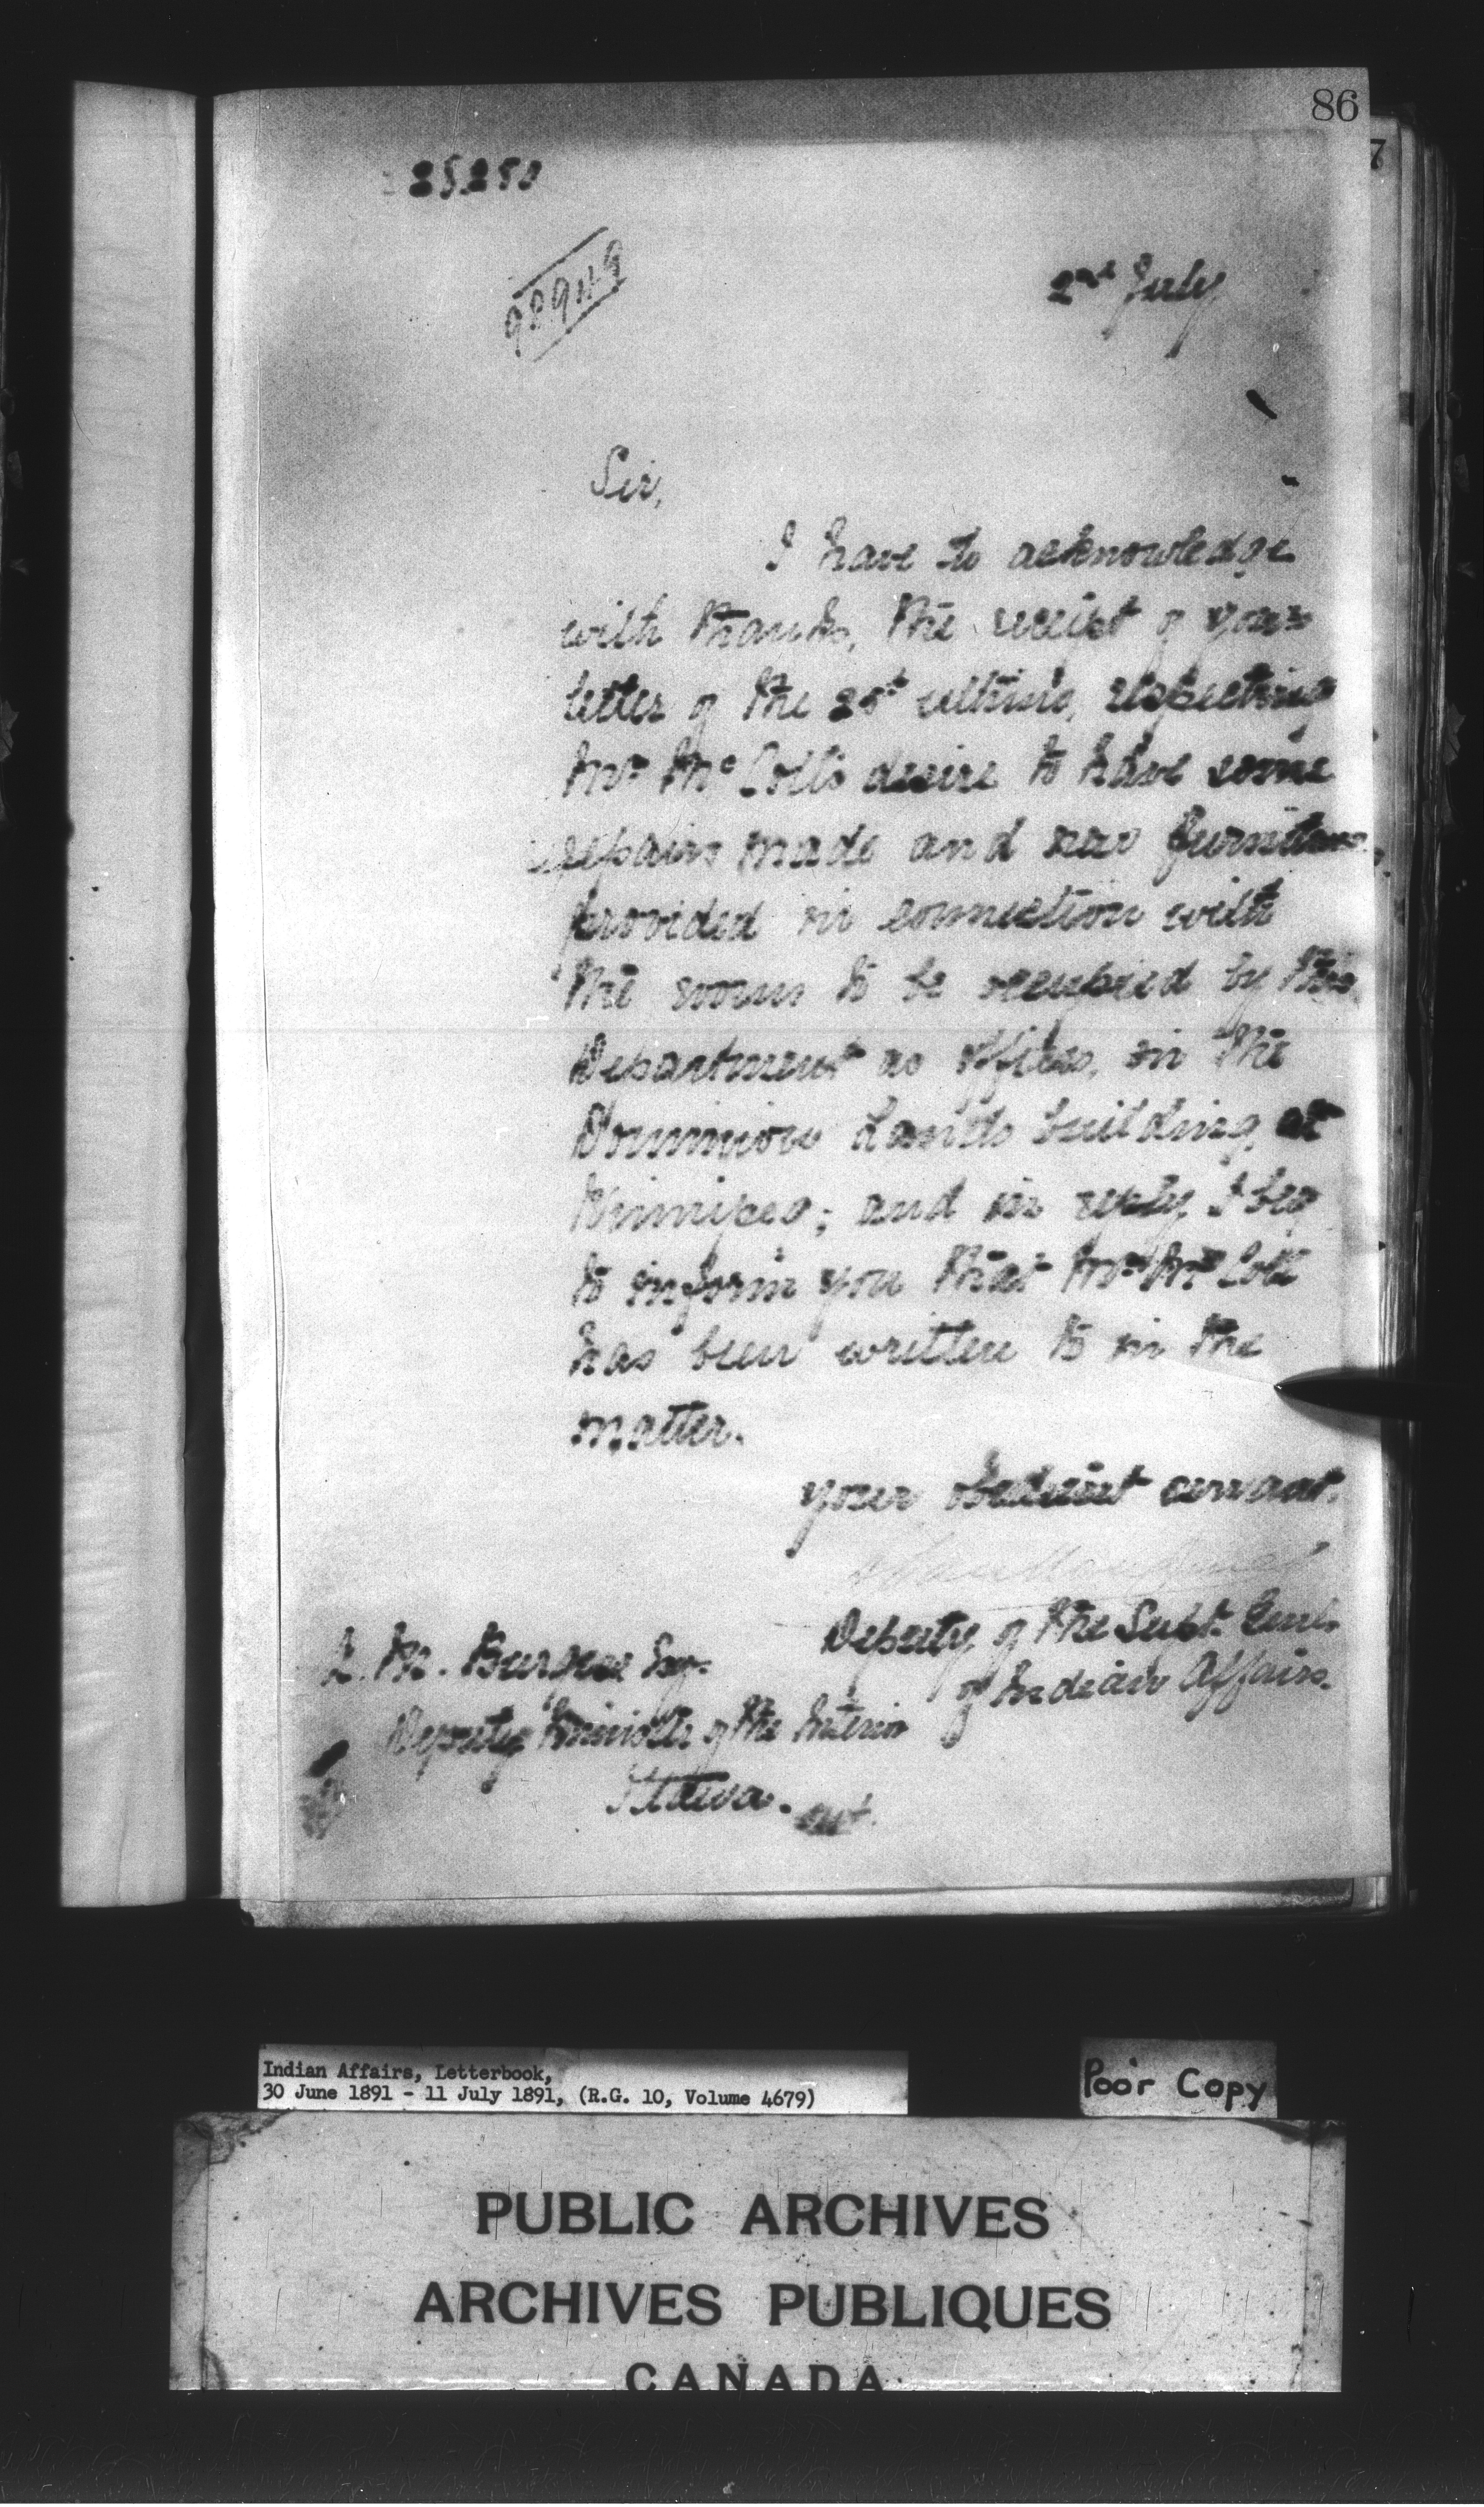 86
7
25250
2nd July
Sir,
I have to acknowledge
with thanks, the receipt of your
letter of the ultimo, respecting
Mr. McColl's desire to have some
repairs made and new furniture
provided in connection with
the rooms to be occupied by this
Department as offices, in the
Dominion Lands building at
Winnipeg; and in reply I beg
to inform you that Mr. McColl
has been written to in the
matter.
Your obedient servant.
Deputy of the Supt. Genl.
of Indian Affairs.
A. M. Burgess Esq.
Deputy Minister of the Interior
Ottawa.
Indian Affairs, Letterbook,
30 June 1891 - 11 July 1891, (R.G. 10, Volume 4679)
Poor Copy
PUBLIC ARCHIVES
ARCHIVES PUBLIQUES
CANADA